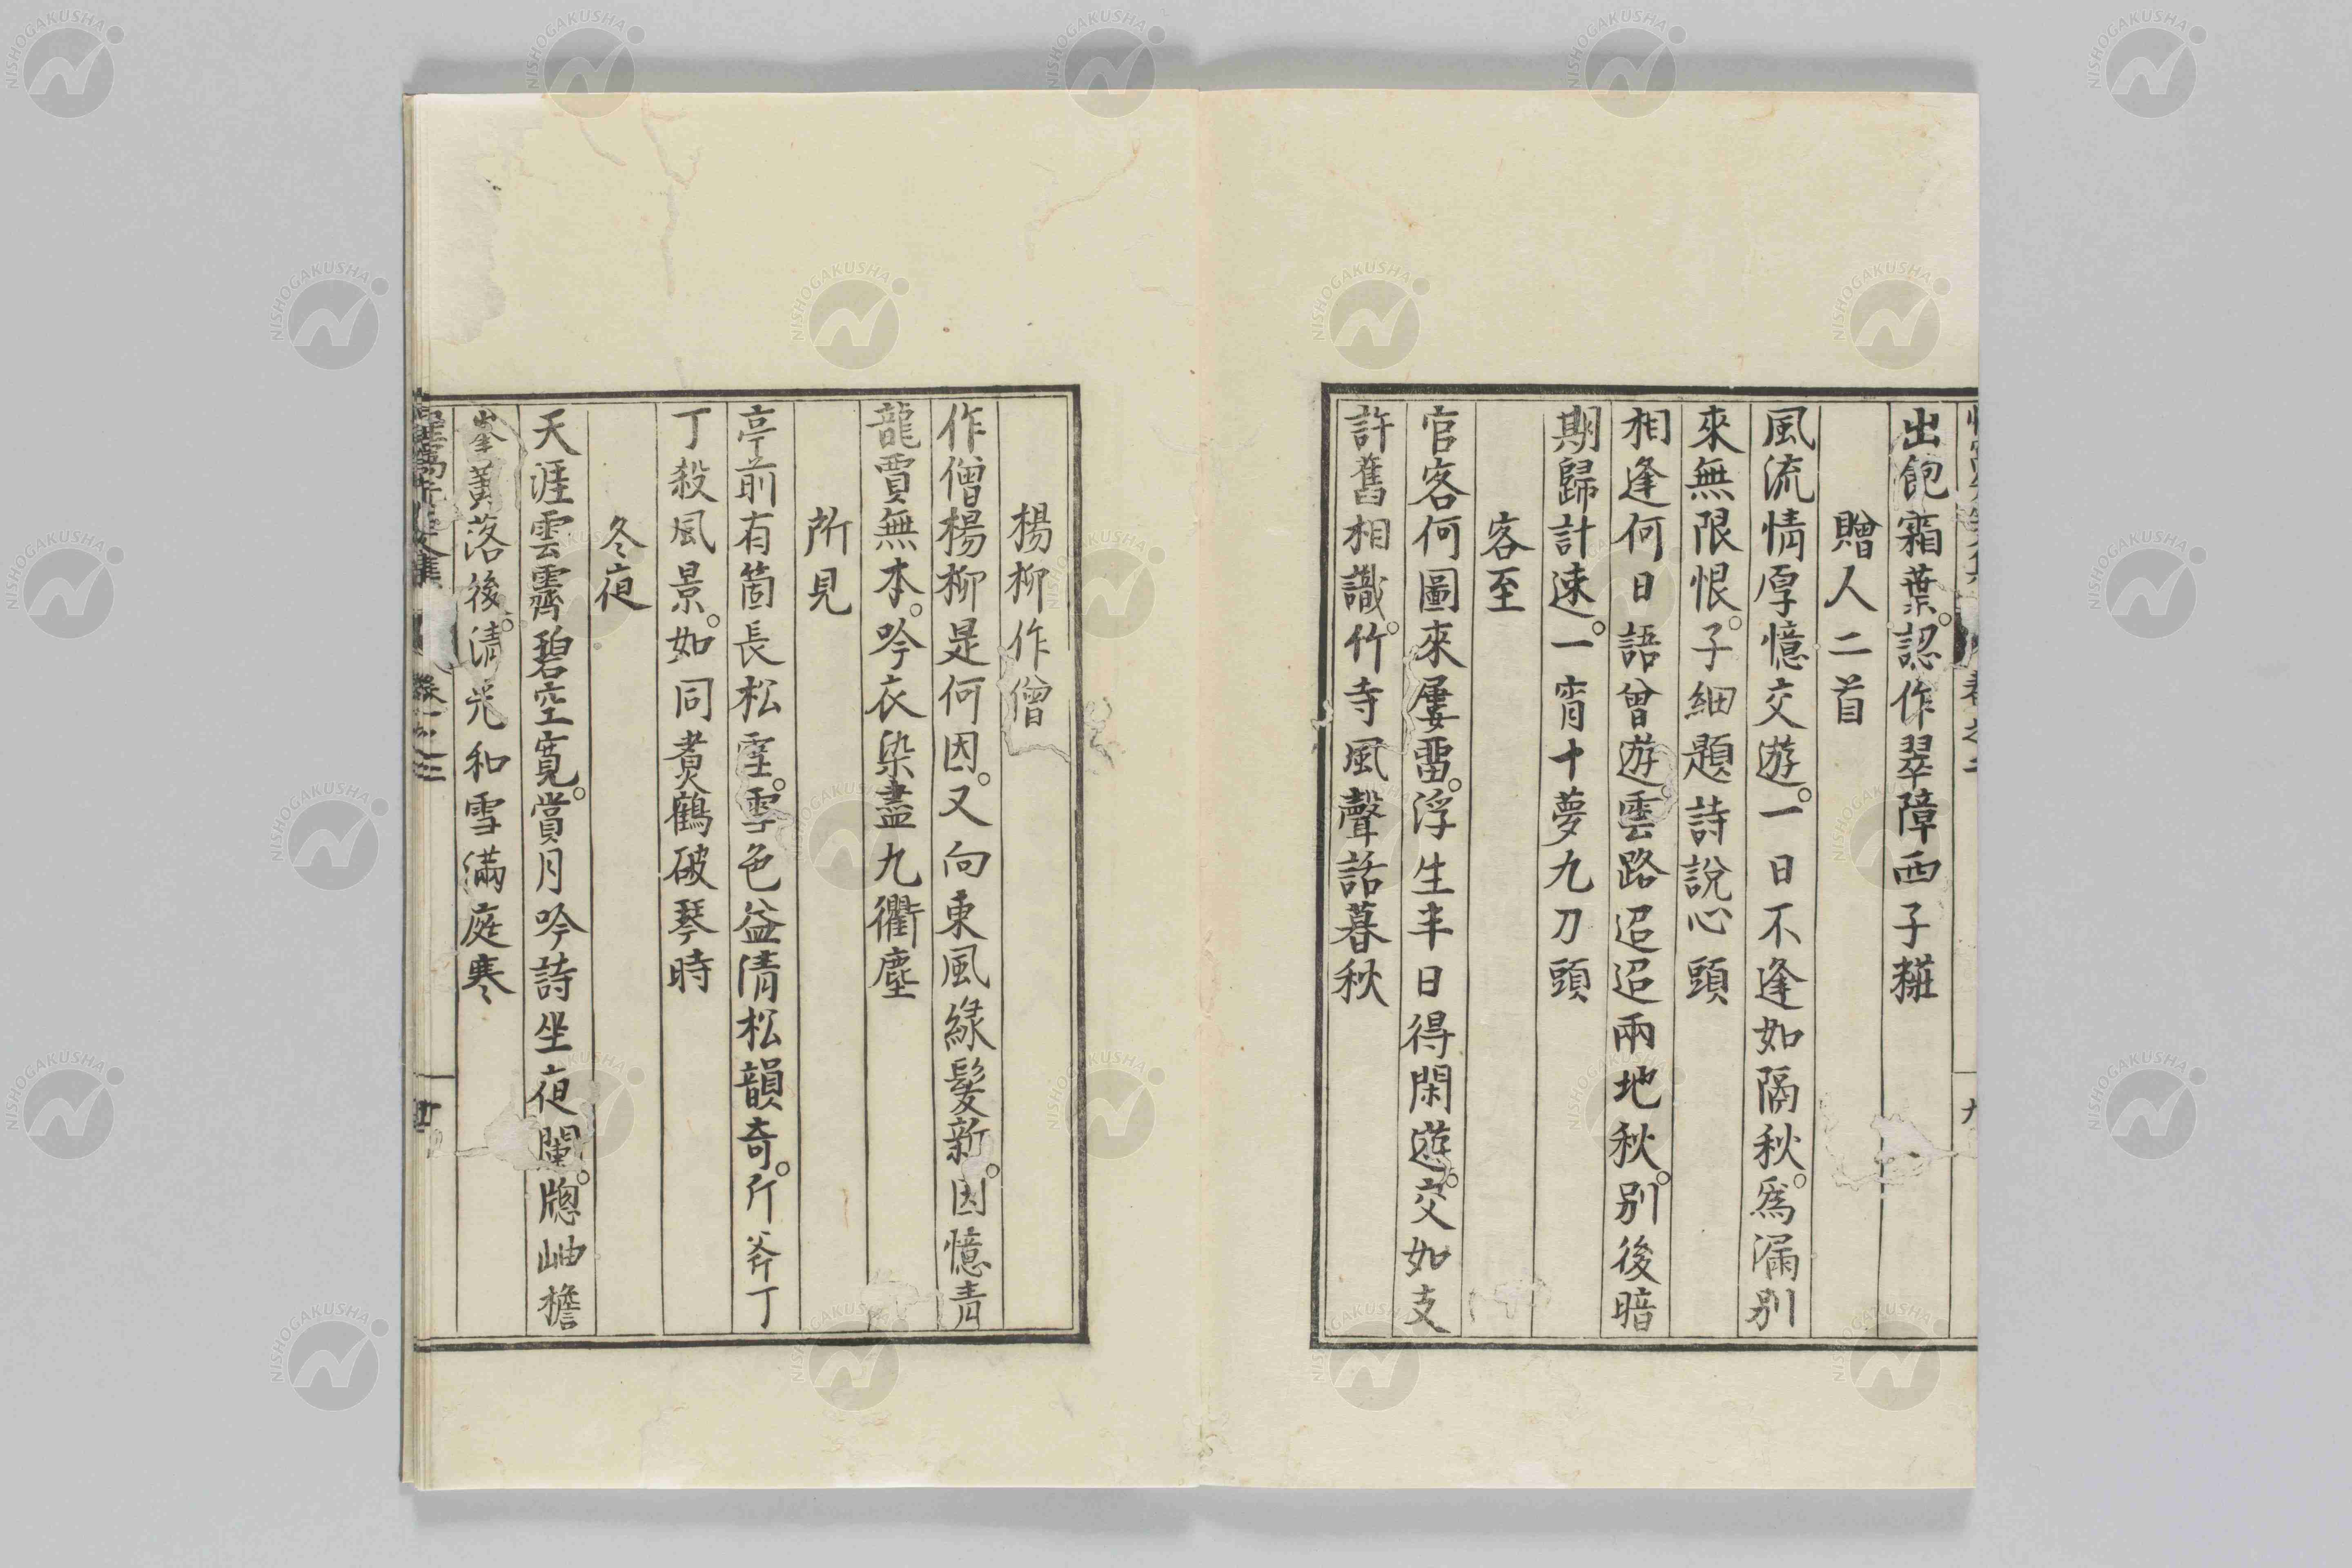 出飽霜葉。認作翠障西子糚
贈人二首
風流情厚憶交遊。一日不逢如隔秋。爲漏別
來無限恨。子細題詩說心頭
相逢何日語曾遊。雲路迢迢兩地秋。別後暗
期歸計速。一宵十夢九刀頭
客至
官客何圖來屢畱。浮生半日得閑遊。交如支
許舊相識。竹寺風聲話暮秋
楊柳作僧
作僧楊柳是何因。又向東風綠髮新。因憶青
龍賈無本。吟衣染盡九衢塵
所見
亭前有箇長松霔。雪色益清松韻奇。斤斧丁
丁殺風景。如同煑鶴破琴時
冬夜
天涯雲霽碧空寬。賞月吟詩坐夜闌。牕岫檐
黃落後。清光和雪滿庭寒
卷之三
NISHOGAKUSHA